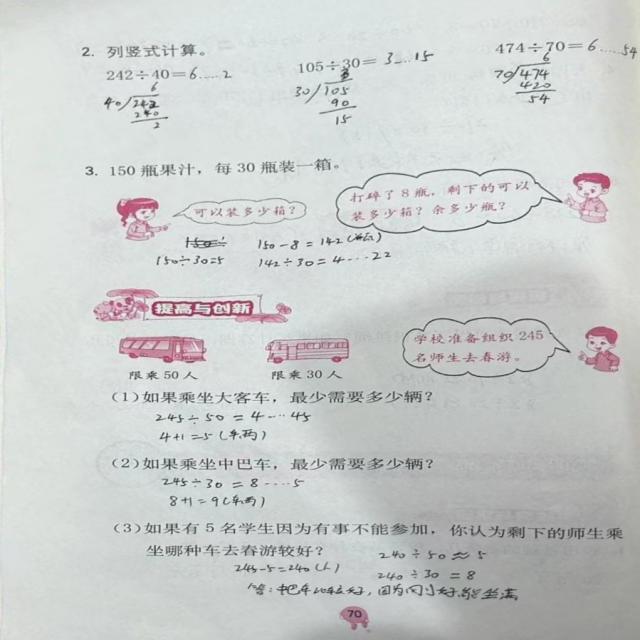 2. 列竖式计算。
242÷40=6……2
105÷30=3…15
474÷70=6……54
6
40 242
240
2
3
30 105
90
15
6
70 474
420
54
3. 150 瓶果汁，每 30 瓶装一箱。
可以装多少箱？
打碎了 8 瓶，剩下的可以
装多少箱？余多少瓶？
150÷30=5
150-8=142(瓶)
142÷30=4…22
提高与创新
限乘 50 人
限乘 30 人
学校准备组织 245
名师生去春游。
(1)如果乘坐大客车，最少需要多少辆？
245÷50=4…45
4+1=5(辆)
(2)如果乘坐中巴车，最少需要多少辆？
245÷30=8…5
8+1=9(辆)
(3)如果有 5 名学生因为有事不能参加，你认为剩下的师生乘
坐哪种车去春游较好？
245-5=240(人)
240÷50≈5
240÷30=8
答:中巴车比较好,因为
能坐满
70